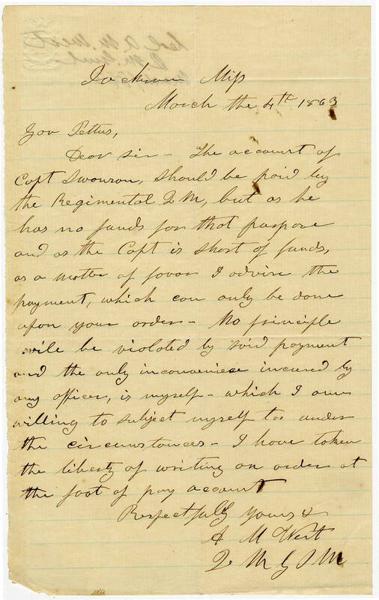 Jackson Miss
March the 4th 1863
Gov Pettus,
Dear sir - The account of
Capt Swanson, should be paid by
the Regimental Q M, but as he
has no funds for that purpose
and as the Capt is short of funds,
as a matter of favor I advise the
payment, which can only be done
upon your order - No principle
will be violated by said payment
and the only inconvenience incured by
any officer, is myself - which I am
willing to subject myself to under
the circumstances - I have taken
the liberty of writing an order at
the foot of pay account
Respectfully Yours &
A M West
Q M G S M